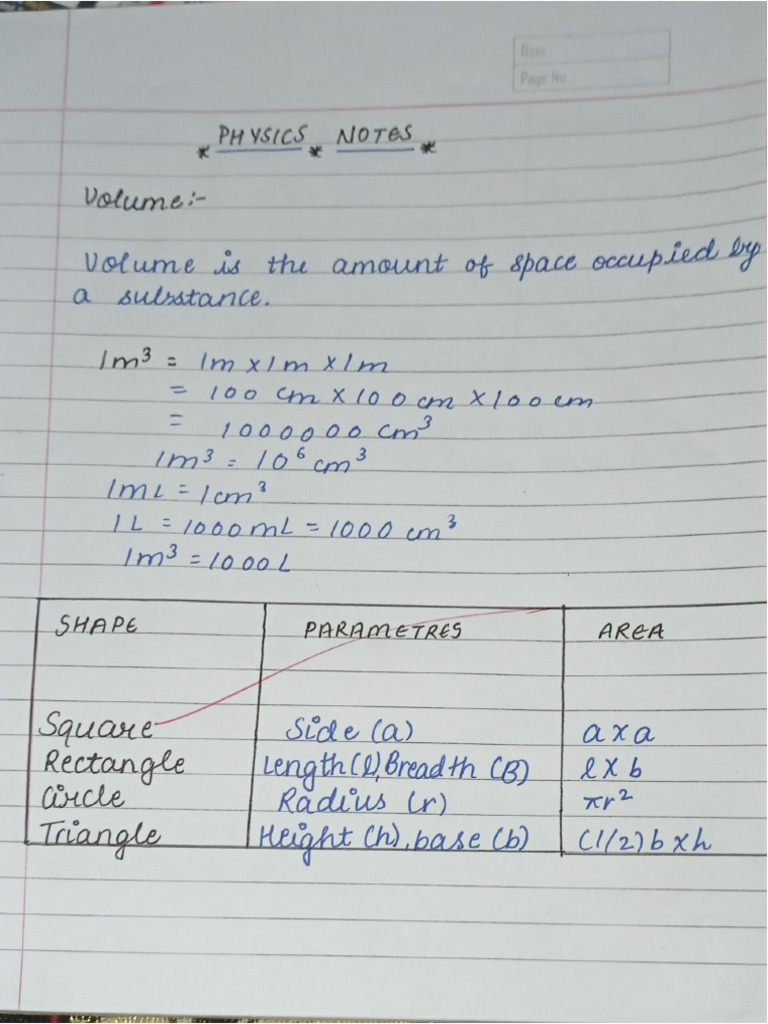 Date
Page No
* PHYSICS * NOTES *
Volume:-
Volume is the amount of space occupied by
a substance.
1m³ = 1m x 1m x 1m
= 100 cm x 100 cm x 100 cm
= 1000000 cm³
1m³ = 10⁶ cm³
1mL = 1cm³
1L = 1000mL = 1000 cm³
1m³ = 1000L
SHAPE PARAMETRES AREA
Square Side (a) a x a
Rectangle Length (l), Breadth (B) l x b
Circle Radius (r) πr²
Triangle Height (h), base (b) (1/2) b x h